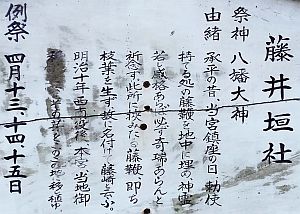 藤井垣社
祭神 八幡大神
由緒 承平の昔、当宮鎮座の日、勅使
持てる処の藤鞭を地中に埋め神霊
若し威格あらば必ず奇瑞あらんと
祈念す此所に挿かたる藤鞭、即ち
枝葉を生ず故に名付て藤崎と云ふ。
明治十年西南の役後、本宮当地御
の地に移し植ゆ
例祭 四月十三、十四、十五日